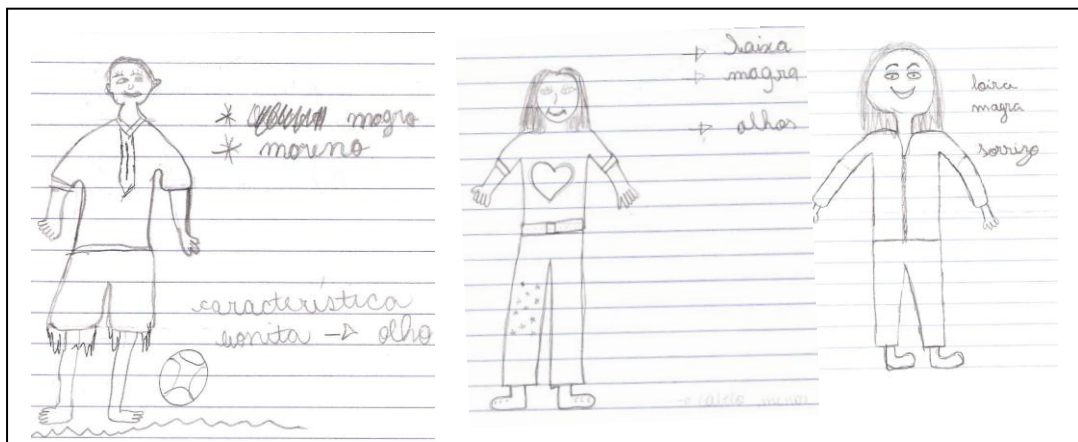 * magro
* moreno
característica
bonita → olho
→ baixa
→ magra
→ olhos
loira
magra
sorrizo